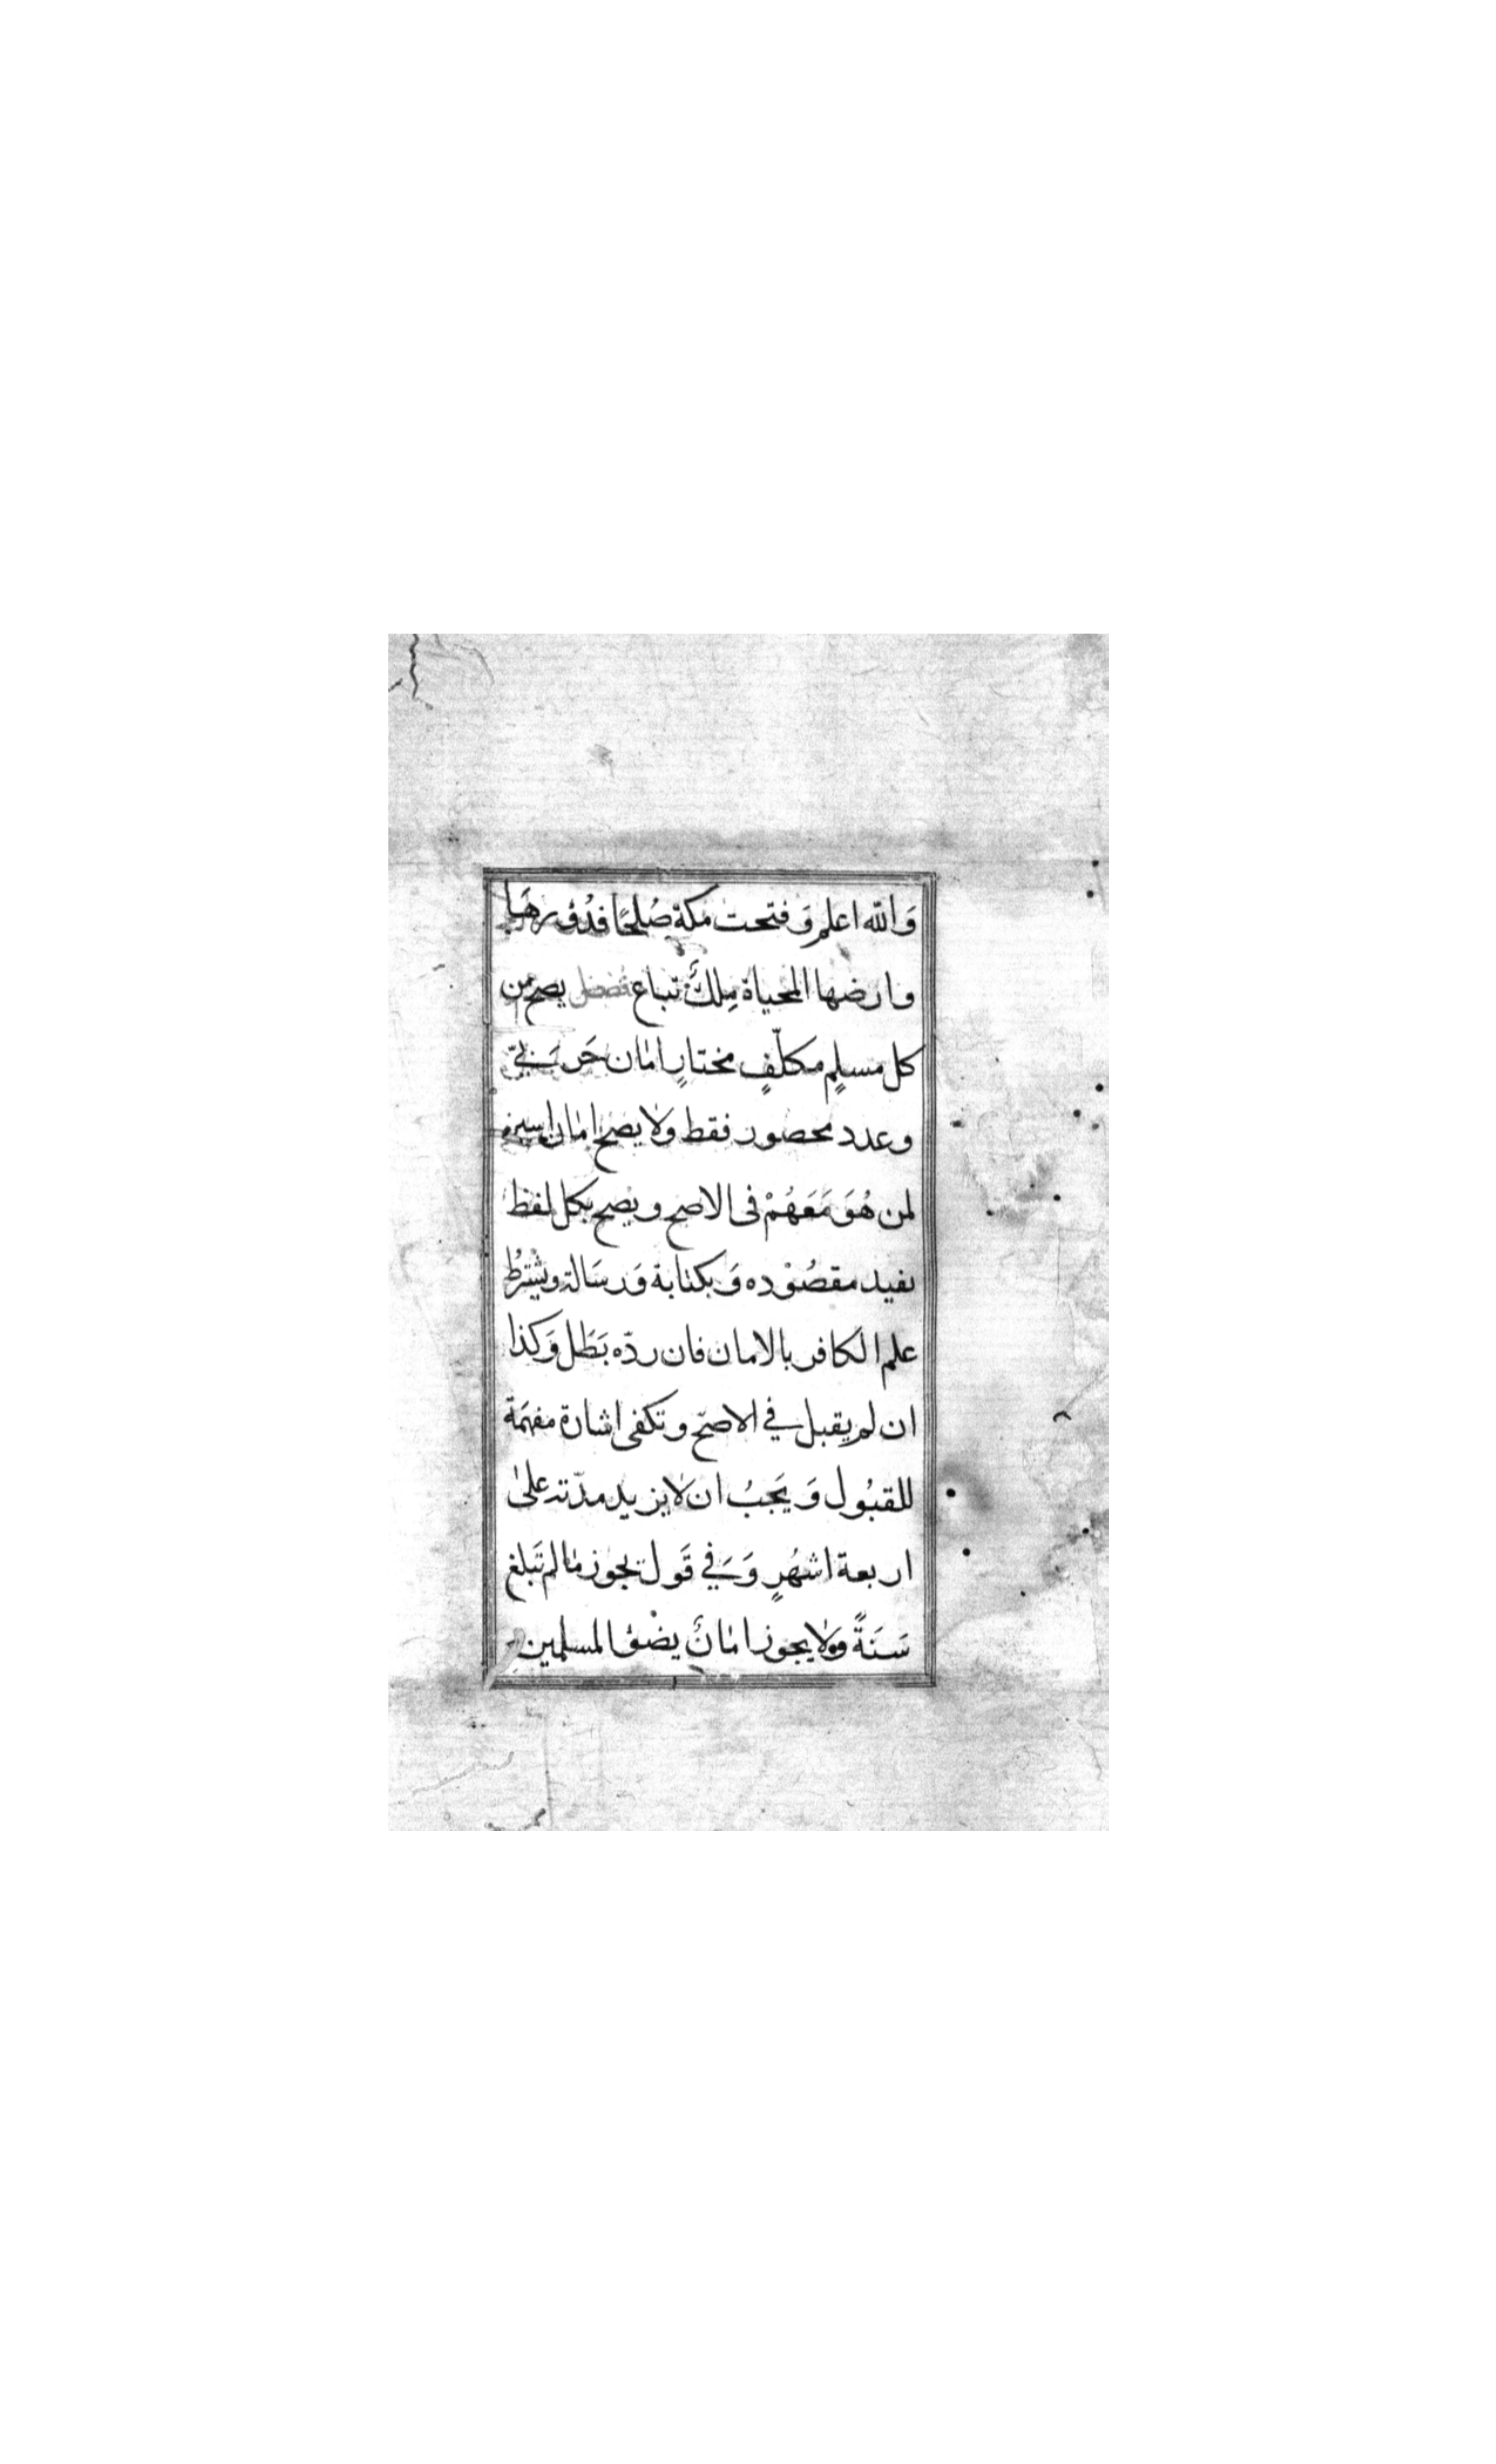 وَالله اعلم وَفتحت مكة صُلحًا فدُورهَا
وارضها المحياة مِلكٌ تباع فصل يصح من
كل مسلمٍ مكلّفٍ مختارٍ امان حَربيّ
وعدد محصور فقط ولا يصح امان اسير
لمن هُوَ مَعَهُمْ فى الاصح ويصح بكل لفظ
يفيد مقصُوْده وَبكتابة وَرسَالة ويشْترطُ
علم الكافر بالامان فان ردّه بَطَل وَكذا
ان لم يقبل في الاصحّ وتكفى اشارة مفهمَة
للقبُول وَيَجبُ ان لا يزيد مدّته على
اربعة اشهُرٍ وَفي قَول يجوز مالم تَبلغ
سَنَةً ولا يجوز امانٌ يضْ المسلمين